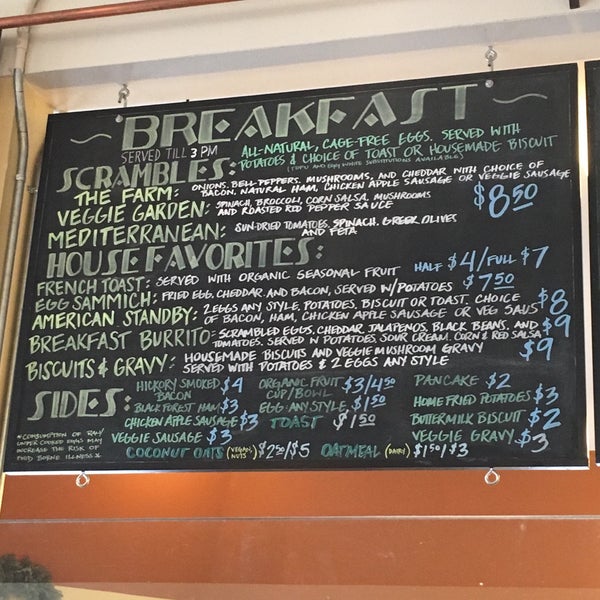 ~ BREAKFAST ~
SERVED TILL 3 PM
SCRAMBLES: ALL-NATURAL, CAGE-FREE EGGS. SERVED WITH
POTATOES & CHOICE OF TOAST OR HOUSEMADE BISCUIT
(TOFU AND EGG WHITE SUBSTITUTIONS AVAILABLE)
THE FARM: ONIONS, BELL PEPPERS, MUSHROOMS, AND CHEDDAR WITH CHOICE OF
BACON, NATURAL HAM, CHICKEN APPLE SAUSAGE OR VEGGIE SAUSAGE
VEGGIE GARDEN: SPINACH, BROCCOLI, CORN SALSA, MUSHROOMS
AND ROASTED RED PEPPER SAUCE
$8.50
MEDITERRANEAN: SUN-DRIED TOMATOES, SPINACH, GREEK OLIVES
AND FETA
HOUSE FAVORITES:
FRENCH TOAST: SERVED WITH ORGANIC SEASONAL FRUIT HALF $4/FULL $7
EGG SAMMICH: FRIED EGG, CHEDDAR AND BACON, SERVED W/POTATOES $7.50
AMERICAN STANDBY: 2 EGGS ANY STYLE, POTATOES, BISCUIT OR TOAST, CHOICE
OF BACON, HAM, CHICKEN APPLE SAUSAGE OR VEG SAUS $8
BREAKFAST BURRITO: SCRAMBLED EGGS, CHEDDAR, JALAPENOS, BLACK BEANS, AND
TOMATOES. SERVED W POTATOES, SOUR CREAM, CORN & RED SALSA $9
BISCUITS & GRAVY: HOUSEMADE BISCUITS AND VEGGIE MUSHROOM GRAVY
SERVED WITH POTATOES & 2 EGGS ANY STYLE $9
SIDES: HICKORY SMOKED BACON $4 ORGANIC FRUIT CUP/BOWL $3/4.50 PANCAKE $2
BLACK FOREST HAM $3 EGG ANY STYLE $1.50 HOME FRIED POTATOES $3
CHICKEN APPLE SAUSAGE $3 TOAST $1.50 BUTTERMILK BISCUIT $2
VEGGIE SAUSAGE $3 VEGGIE GRAVY $3
COCONUT OATS (VEGAN, NUTS) $2.50/$5 OATMEAL (DAIRY) $1.50/$3
*CONSUMPTION OF RAW/
UNDER COOKED EGGS MAY
INCREASE THE RISK OF
FOOD BORNE ILLNESS*